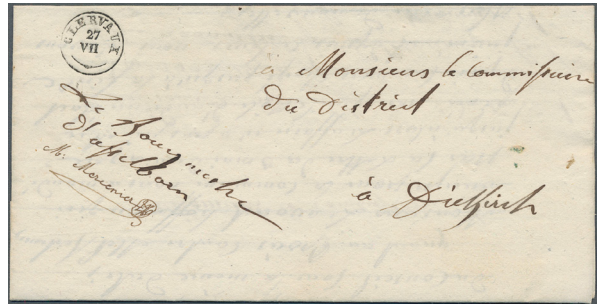 CLERVAUX
27
VII
à Monsieur le Commissaire
du District
à Diekirch
Le Bourgmestre
d'asselborn